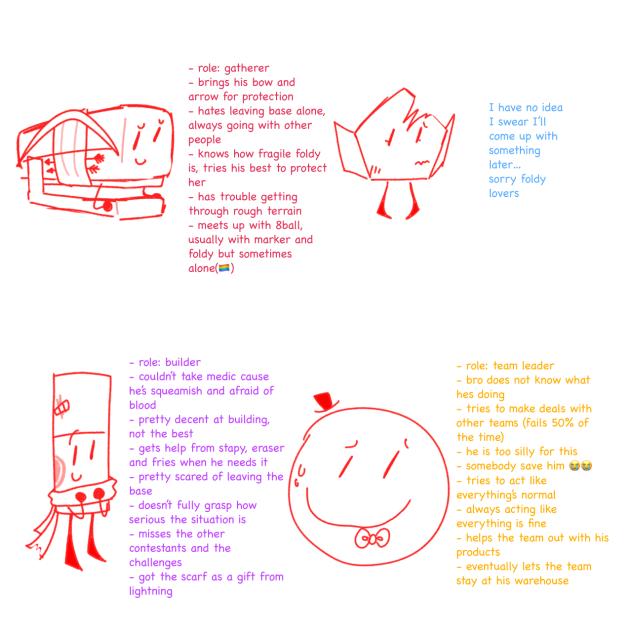 - role: gatherer
- brings his bow and
arrow for protection
- hates leaving base alone,
always going with other
people
- knows how fragile foldy
is, tries his best to protect
her
- has trouble getting
through rough terrain
- meets up with 8ball,
usually with marker and
foldy but sometimes
alone(🏳️‍🌈)
I have no idea
I swear I'll
come up with
something
later...
sorry foldy
lovers
- role: builder
- couldn't take medic cause
he's squeamish and afraid of
blood
- pretty decent at building,
not the best
- gets help from stapy, eraser
and fries when he needs it
- pretty scared of leaving the
base
- doesn't fully grasp how
serious the situation is
- misses the other
contestants and the
challenges
- got the scarf as a gift from
lightning
- role: team leader
- bro does not know what
hes doing
- tries to make deals with
other teams (fails 50% of
the time)
- he is too silly for this
- somebody save him 😭😭
- tries to act like
everything's normal
- always acting like
everything is fine
- helps the team out with his
products
- eventually lets the team
stay at his warehouse